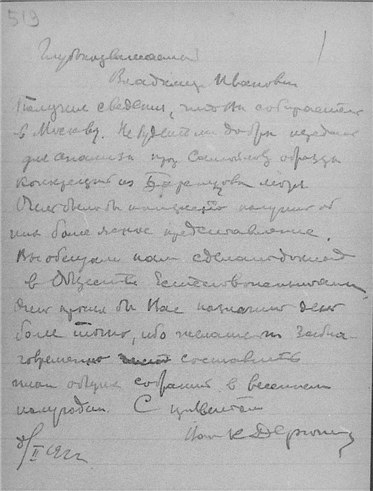 519
Глубокоуважаемый
Владимир Иванович
Получив сведения, что Вы собираетесь
в Москву. Не будете ли добры передать
для анализа проф. образцы
конкреций из Баренцова моря
Очень было бы получить об
них более ясное представление.
Вы обещали нам сделать доклад
в Обществе Естествоиспытателей,
очень просил бы Вас назначить день
более точно, ибо желательно забла-
говременно составить
план общих собраний в весеннем
полугодии. С приветом
К Дерюгин
8/II 1922